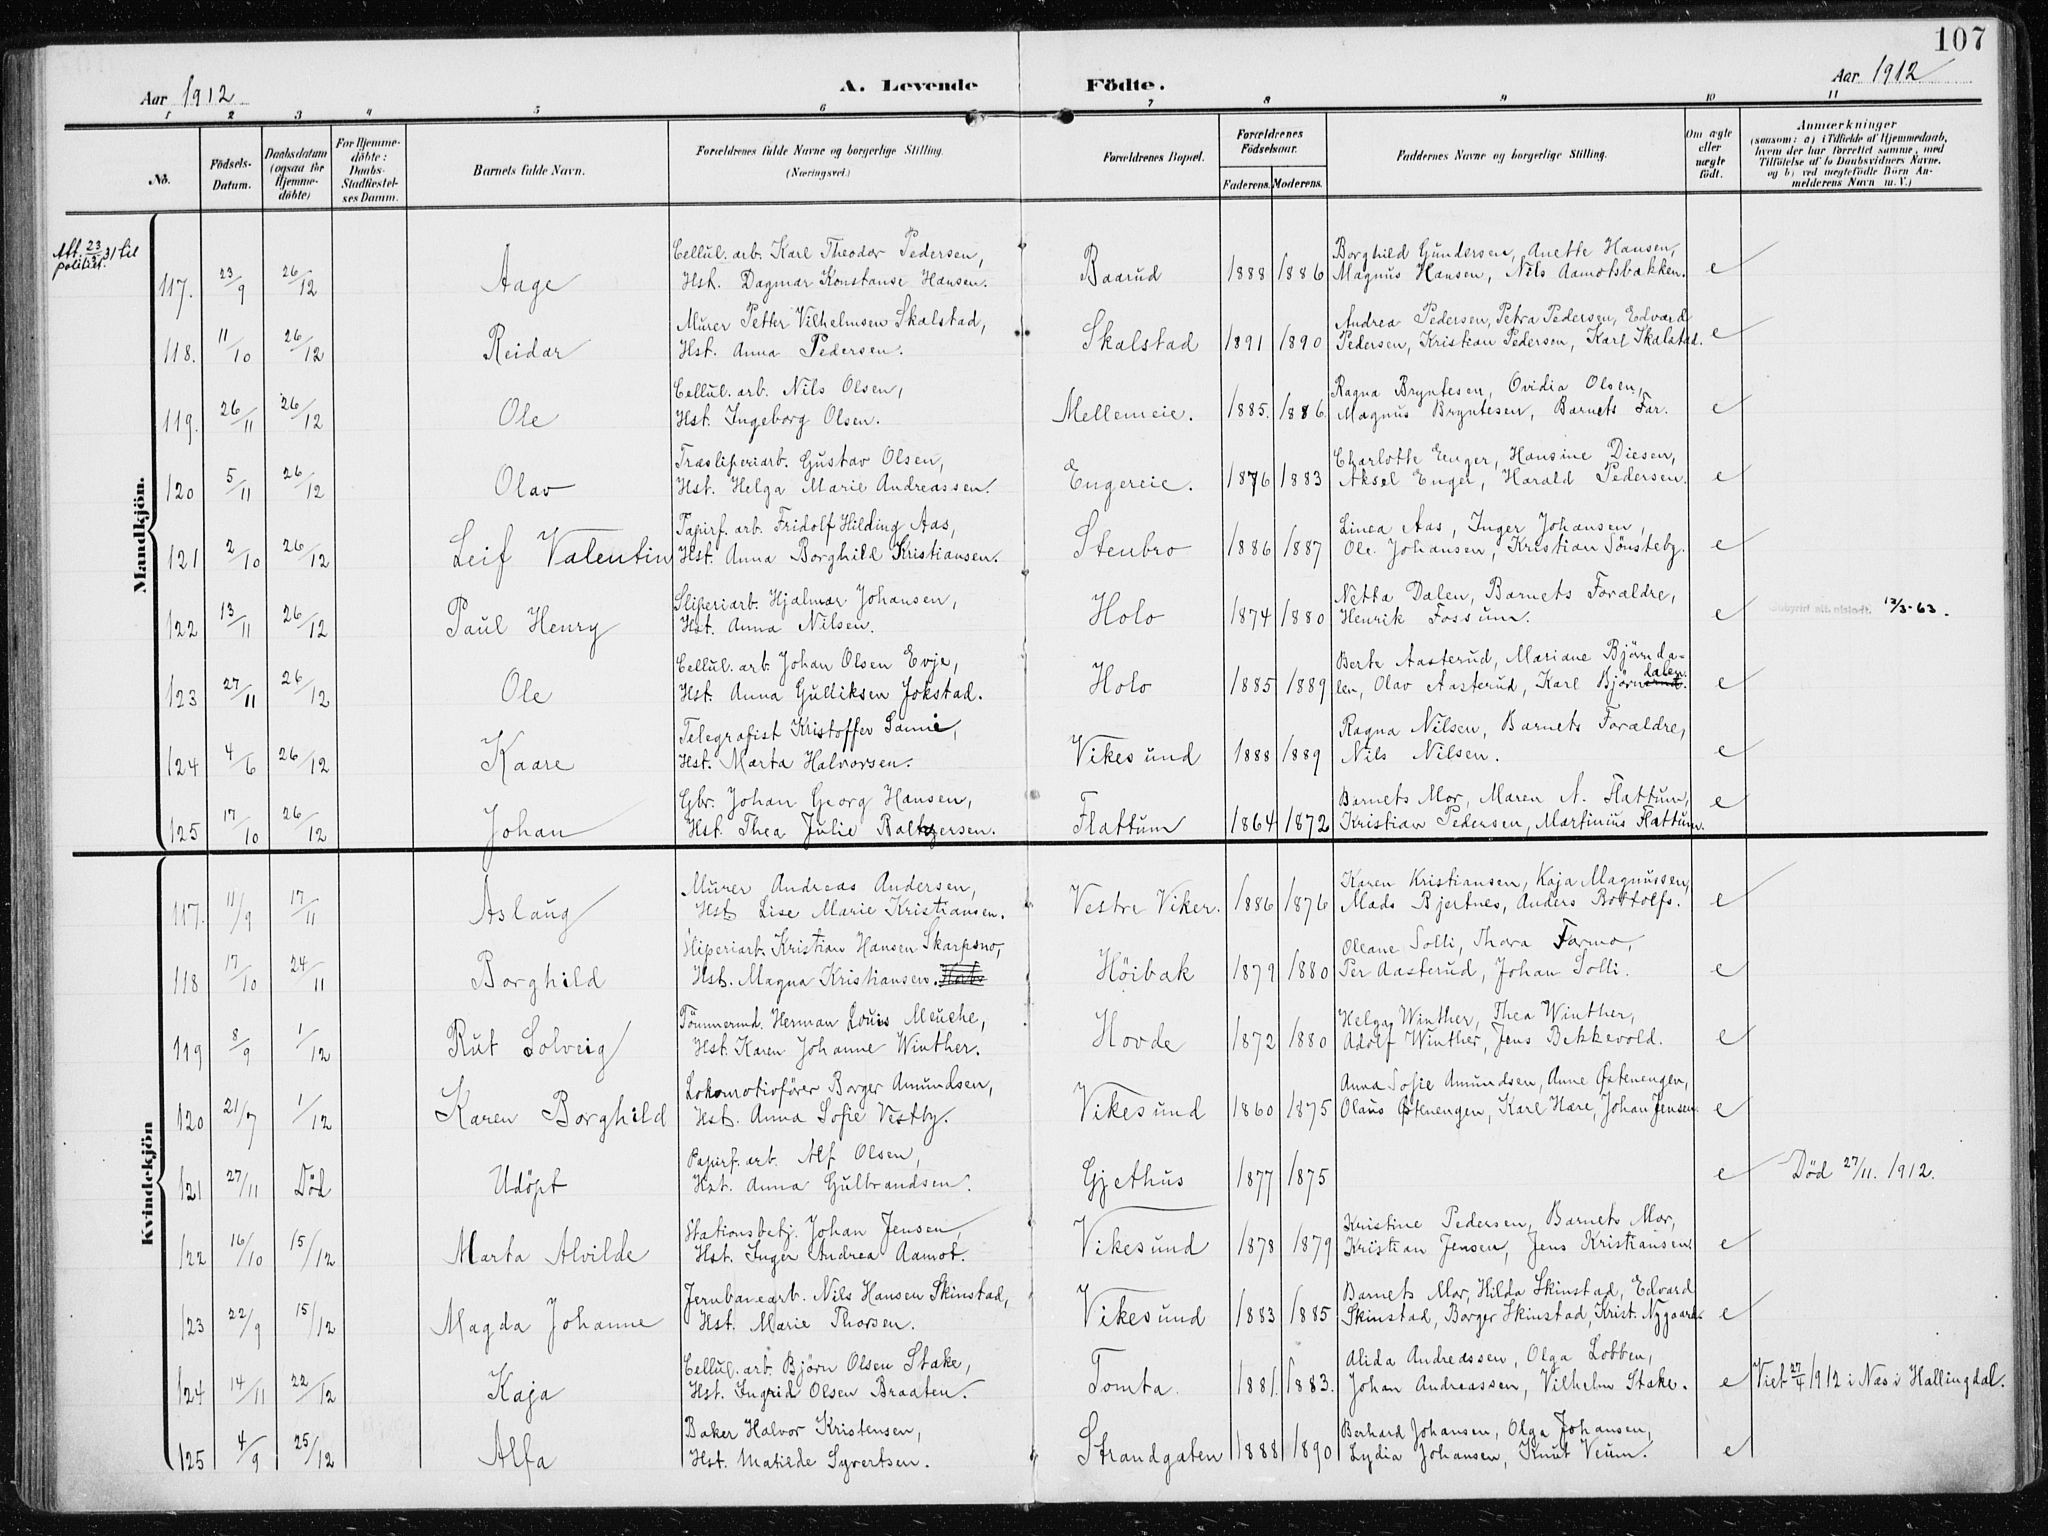 107
Aar 1912
A. Levende Födte.
Aar 1912
1 2 3 4 5 6 7 8 9 10 11
No.
Födsels-Datum.
Daabsdatum (ogsaa for Hjemme-döbte)
For Hjemme-döbte: Daabs-Stadfæstel-ses Datum.
Barnets fulde Navn.
Forældrenes fulde Navne og borgerlige Stilling. (Næringsvei.)
Forældrenes Bopæl.
Forældrenes Födselsaar.
Faderens. Moderens.
Faddernes Navne og borgerlige Stilling.
Om ægte eller uægte födt.
Anmærkninger
(saasom: a) i Tilfælde af Hjemmedaab, hvem der har forrettet samme, med Tilföielse af to Daabsvidners Navne, og b) ved uægtefödte Börn An-melderens Navn m. V.)
Mandkjön.
Att. 23/3 31 til politiet.
117. 23/9 26/12 Aage Cellul. arb. Karl Theodor Pedersen, Baarud 1888 1886 Borghild Gundersen, Anette Hansen, e
Hst. Dagmar Konstanse Hansen. Magnus Hansen, Nils Aamotsbakken.
118. 11/10 26/12 Reidar Murer Petter Vilhelmsen Skalstad, Skalstad 1891 1890 Andrea Pedersen, Petra Pedersen, Edvard e
Hst. Anna Pedersen. Pedersen, Kristian Pedersen, Karl Skalstad.
119. 26/11 26/12 Ole Cellul. arb. Nils Olsen, Mellemeie. 1885. 1886. Ragna Bryntesen, Ovidia Olsen, e
Hst. Ingeborg Olsen. Magnus Bryntesen, Barnets Far.
120 5/11 26/12 Olav Træsliperiarb. Gustav Olsen, Engereie. 1876 1883 Charlotte Enger, Hansine Diesen, e
Hst. Helga Marie Andreassen. Aksel Enger, Harald Pedersen.
121 2/10 26/12 Leif Valentin Papirf. arb. Fridolf Hilding Aas, Stenbro 1886 1887 Linea Aas, Inger Johansen, e
Hst. Anna Borghild Kristiansen. Ole Johansen, Kristian Sønsteby.
122 13/11 26/12 Paul Henry Sliperiarb. Hjalmar Johansen, Holo 1874 1880 Netta Dalen, Barnets Forældre, e 12/3-63.
Hst. Anna Nilsen. Henrik Fossum.
123 27/11 26/12 Ole Cellul. arb. Johan Olsen Evje, Holo 1885 1889 Berte Aasterud, Mariane Bjørnda- e
Hst. Anna Gulliksen Jokstad. len, Olav Aasterud, Karl Bjørnerud. dalen
124 4/6 26/12 Kaare Telegrafist Kristoffer Lamie, Vikesund 1888 1889 Ragna Nilsen, Barnets Forældre, e
Hst. Marta Halvorsen. Nils Nilsen.
125 17/10 26/12 Johan Gbr. Johan Georg Hansen, Flattum 1864 1872 Barnets Mor, Maren A. Flattum, e
Hst. Thea Julie Baltzersen. Kristian Pedersen, Martinius Flattum.
Kvindekjön
117. 11/9 17/11 Aslaug Murer Andreas Andersen, Vestre Viker. 1886 1876 Karen Kristiansen, Kaja Magnussen, e
Hst. Lise Marie Kristiansen. Mads Bjertnes, Anders Bottolfs.
118 17/10 24/11 Borghild Sliperiarb. Kristian Hansen Skarpsno, Høibak 1879 1880 Oleane Solli, Thora Formo, e
Hst. Magna Kristiansen. Per Aasterud, Johan Solli.
119 8/9 1/12 Rut Solveig Tømmermd. Herman Louis Meuche, Hovde 1872 1880 Helga Winther, Thea Winther, e
Hst. Karen Johanne Winther. Adolf Winther, Jens Bekkevold.
120 21/7 1/12 Karen Borghild Lokomotivfører Borger Amundsen, Vikesund 1860 1875 Anna Sofie Amundsen, Anne Østenengen, e
Hst. Anna Sofie Vestby. Olaus Østenengen, Karl Hare, Johan Jensen.
121 27/11 Död Udöpt Papirf. arb. Alf Olsen, Gjethus 1877 1875 e Död 27/11. 1912.
Hst. Anna Gulbrandsen.
122 16/10 15/12 Marta Alvilde Stationsbetj. Johan Jensen Vikesund 1878 1879 Kristine Pedersen, Barnets Mor, e
Hst. Inger Andrea Aamot. Kristian Jensen, Jens Kristiansen.
123 22/9 15/12 Magda Johanne Jernbanearb. Nils Hansen Skinstad, Vikesund 1883 1885 Barnets Mor, Hilda Skinstad, Edvard e
Hst. Marie Thorsen. Skinstad, Borger Skinstad, Krist. Nygaard.
124 14/11 22/12 Kaja Cellul. arb. Bjørn Olsen Stake, Tomta. 1881. 1883. Alida Andreassen, Olga Lobben, e Viet 27/4 1912 i Næs i Hallingdal.
Hst. Ingrid Olsen Braaten. Johan Andreassen, Vilhelm Stake.
125 4/9 25/12 Alfa Baker Halvor Kristensen, Strandgaten 1888 1890 Berhard Johansen, Olga Johansen, e
Hst. Matilde Syvertsen. Lydia Johansen, Knut Veum.